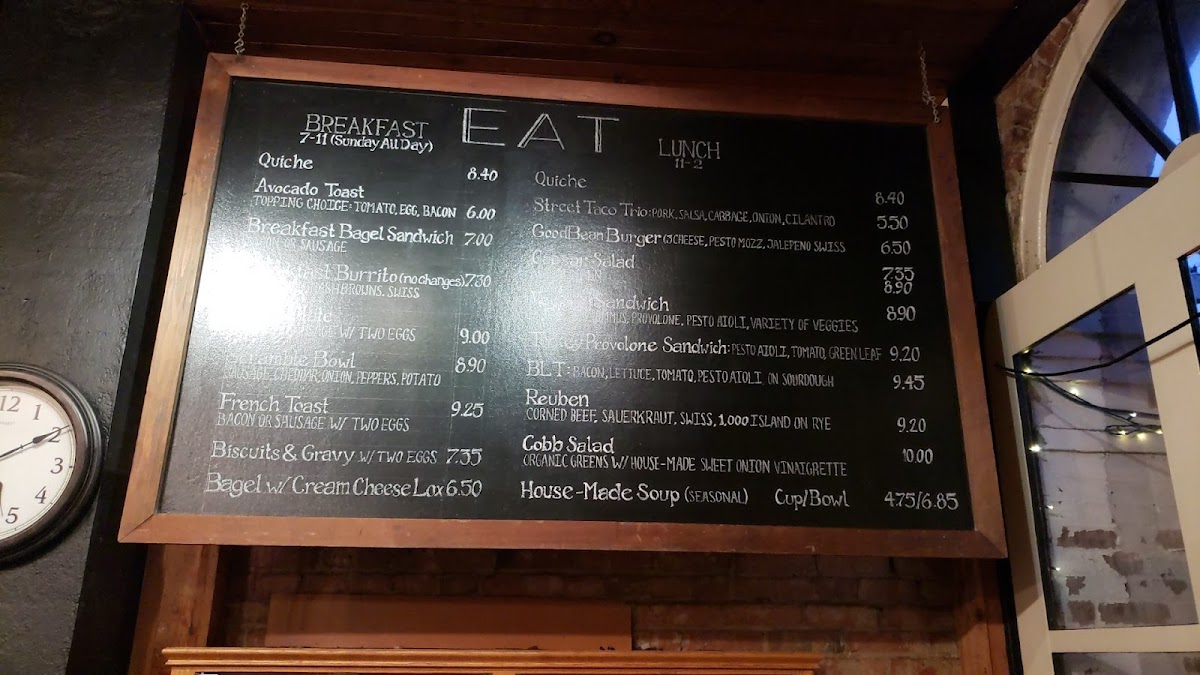 EAT
BREAKFAST
7-11 (Sunday All Day)
Quiche 8.40
Avocado Toast
TOPPING CHOICE: TOMATO, EGG, BACON 6.00
Breakfast Bagel Sandwich 7.00
OR SAUSAGE
Burrito (no changes) 7.30
SWISS
W/ TWO EGGS 9.00
Bowl 8.90
SAUSAGE, CHEDDAR, ONION, PEPPERS, POTATO
French Toast 9.25
BACON OR SAUSAGE W/ TWO EGGS
Biscuits & Gravy W/ TWO EGGS 7.35
Bagel w/ Cream Cheese Lox 6.50
LUNCH
11-2
Quiche 8.40
Street Taco Trio: PORK, SALSA, CABBAGE, ONION, CILANTRO 5.50
GoodBean Burger CHEESE, PESTO MOZZ, JALEPENO SWISS 6.50
Salad 7.35
8.90
Sandwich 8.90
PROVOLONE, PESTO AIOLI, VARIETY OF VEGGIES
Provolone Sandwich: PESTO AIOLI, TOMATO, GREEN LEAF 9.20
BLT: BACON, LETTUCE, TOMATO, PESTO AIOLI ON SOURDOUGH 9.45
Reuben
CORNED BEEF, SAUERKRAUT, SWISS, 1,000 ISLAND ON RYE 9.20
Cobb Salad 10.00
ORGANIC GREENS W/ HOUSE-MADE SWEET ONION VINAIGRETTE
House-Made Soup (SEASONAL) Cup/Bowl 4.75/6.85
12
1
2
3
4
5